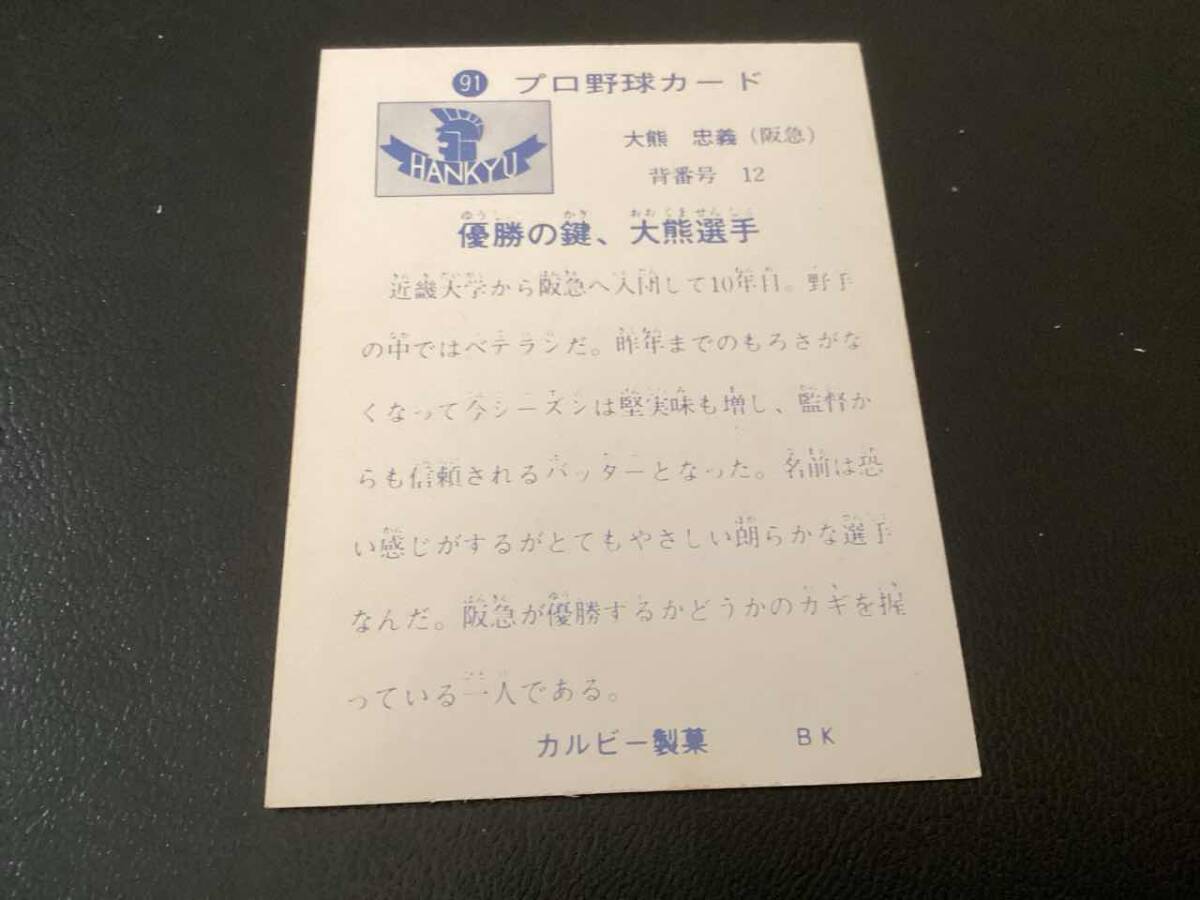 91 プロ野球カード
HANKYU
大熊 忠義（阪急）
背番号 12
優勝の鍵、大熊選手
近畿大学から阪急へ入団して10年目。野手
の中ではベテランだ。昨年までのもろさがな
くなって今シーズンは堅実味も増し、監督か
らも信頼されるバッターとなった。名前は恐
い感じがするがとてもやさしい朗らかな選手
なんだ。阪急が優勝するかどうかのカギを握
っている一人である。
カルビー製菓 BK